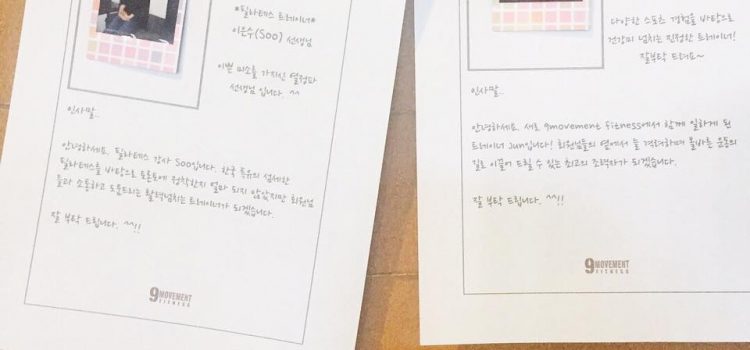 *필라테스 트레이너*
이은수(Soo) 선생님
이쁜 미소를 가지신 열정파
선생님 입니다. ^^
인사말..
안녕하세요. 필라테스 강사 Soo입니다. 한국 특유의 섬세한
필라테스를 바탕으로 토론토에 정착한지 얼마 되지 않았지만 회원님
들과 소통하고 도움드리는 활력넘치는 트레이너가 되겠습니다.
잘 부탁 드립니다. ^^!!
9MOVEMENT
FITNESS
다양한 스포츠 경험을 바탕으로
건강미 넘치는 진정한 트레이너!
잘부탁 드려요~
인사말..
안녕하세요. 새로 9movement fitness에서 함께 일하게 된
트레이너 Jun입니다! 회원님들의 옆에서 늘 격려하며 올바른 운동의
길로 이끌어 드릴 수 있는 최고의 조력자가 되겠습니다.
잘 부탁 드립니다. ^^!!
9MOVEMENT
FITNESS